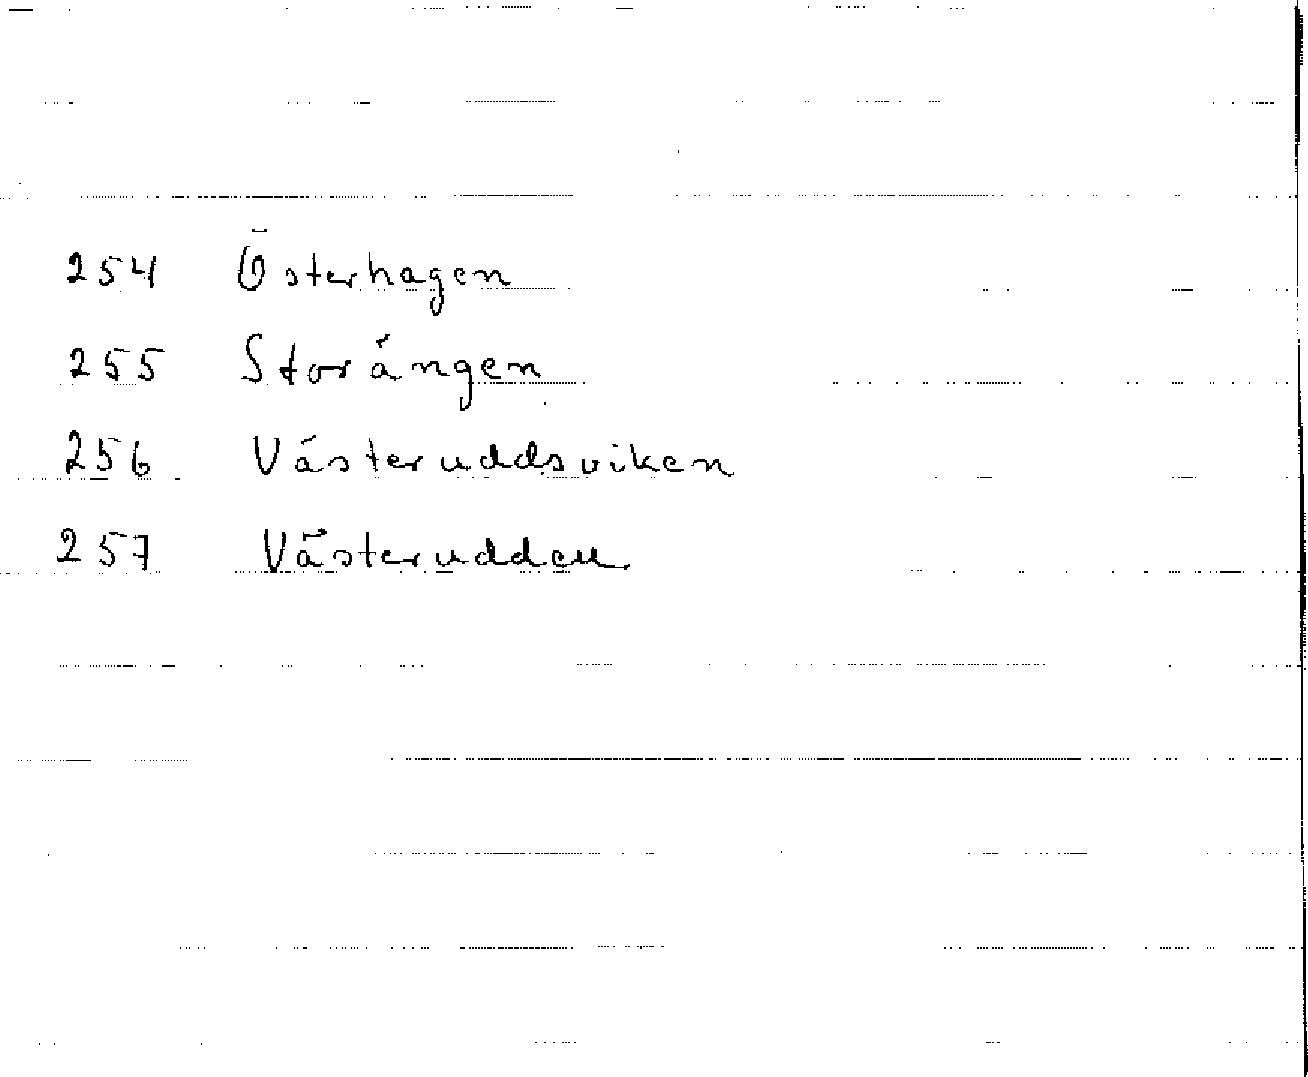 254 Österhagen
255 Storängen
256 Västeruddsviken
257 Västerudden